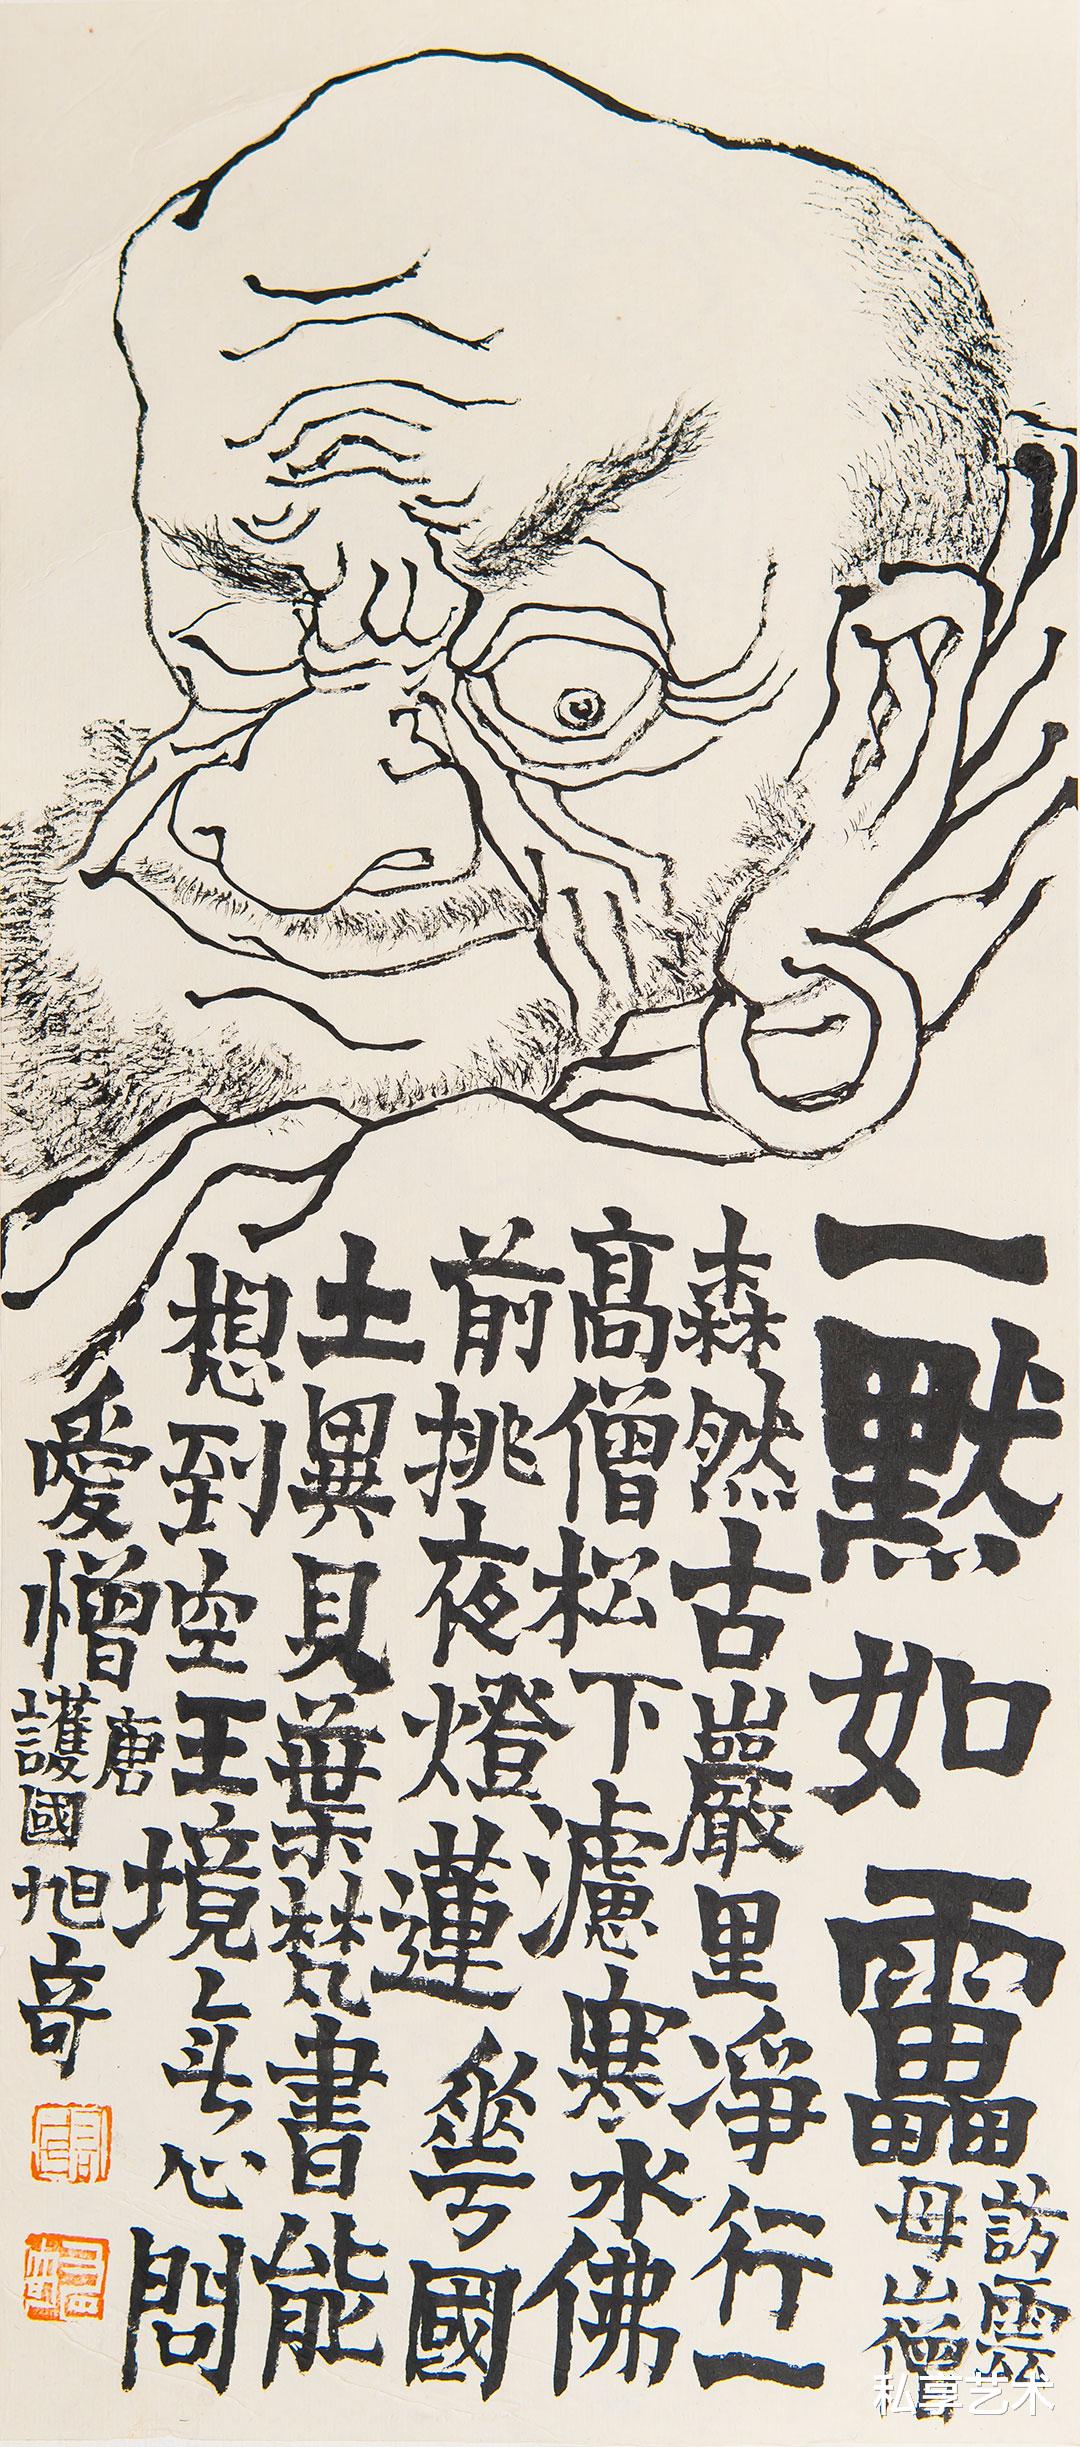 一默如雷
訪雲
母山僧
森然古巖里淨行一
高僧松下濾寒水佛
前挑夜燈蓮華國
土異貝葉梵書能
想到空王境无心問
愛憎
唐
護國旭奇
私享艺术